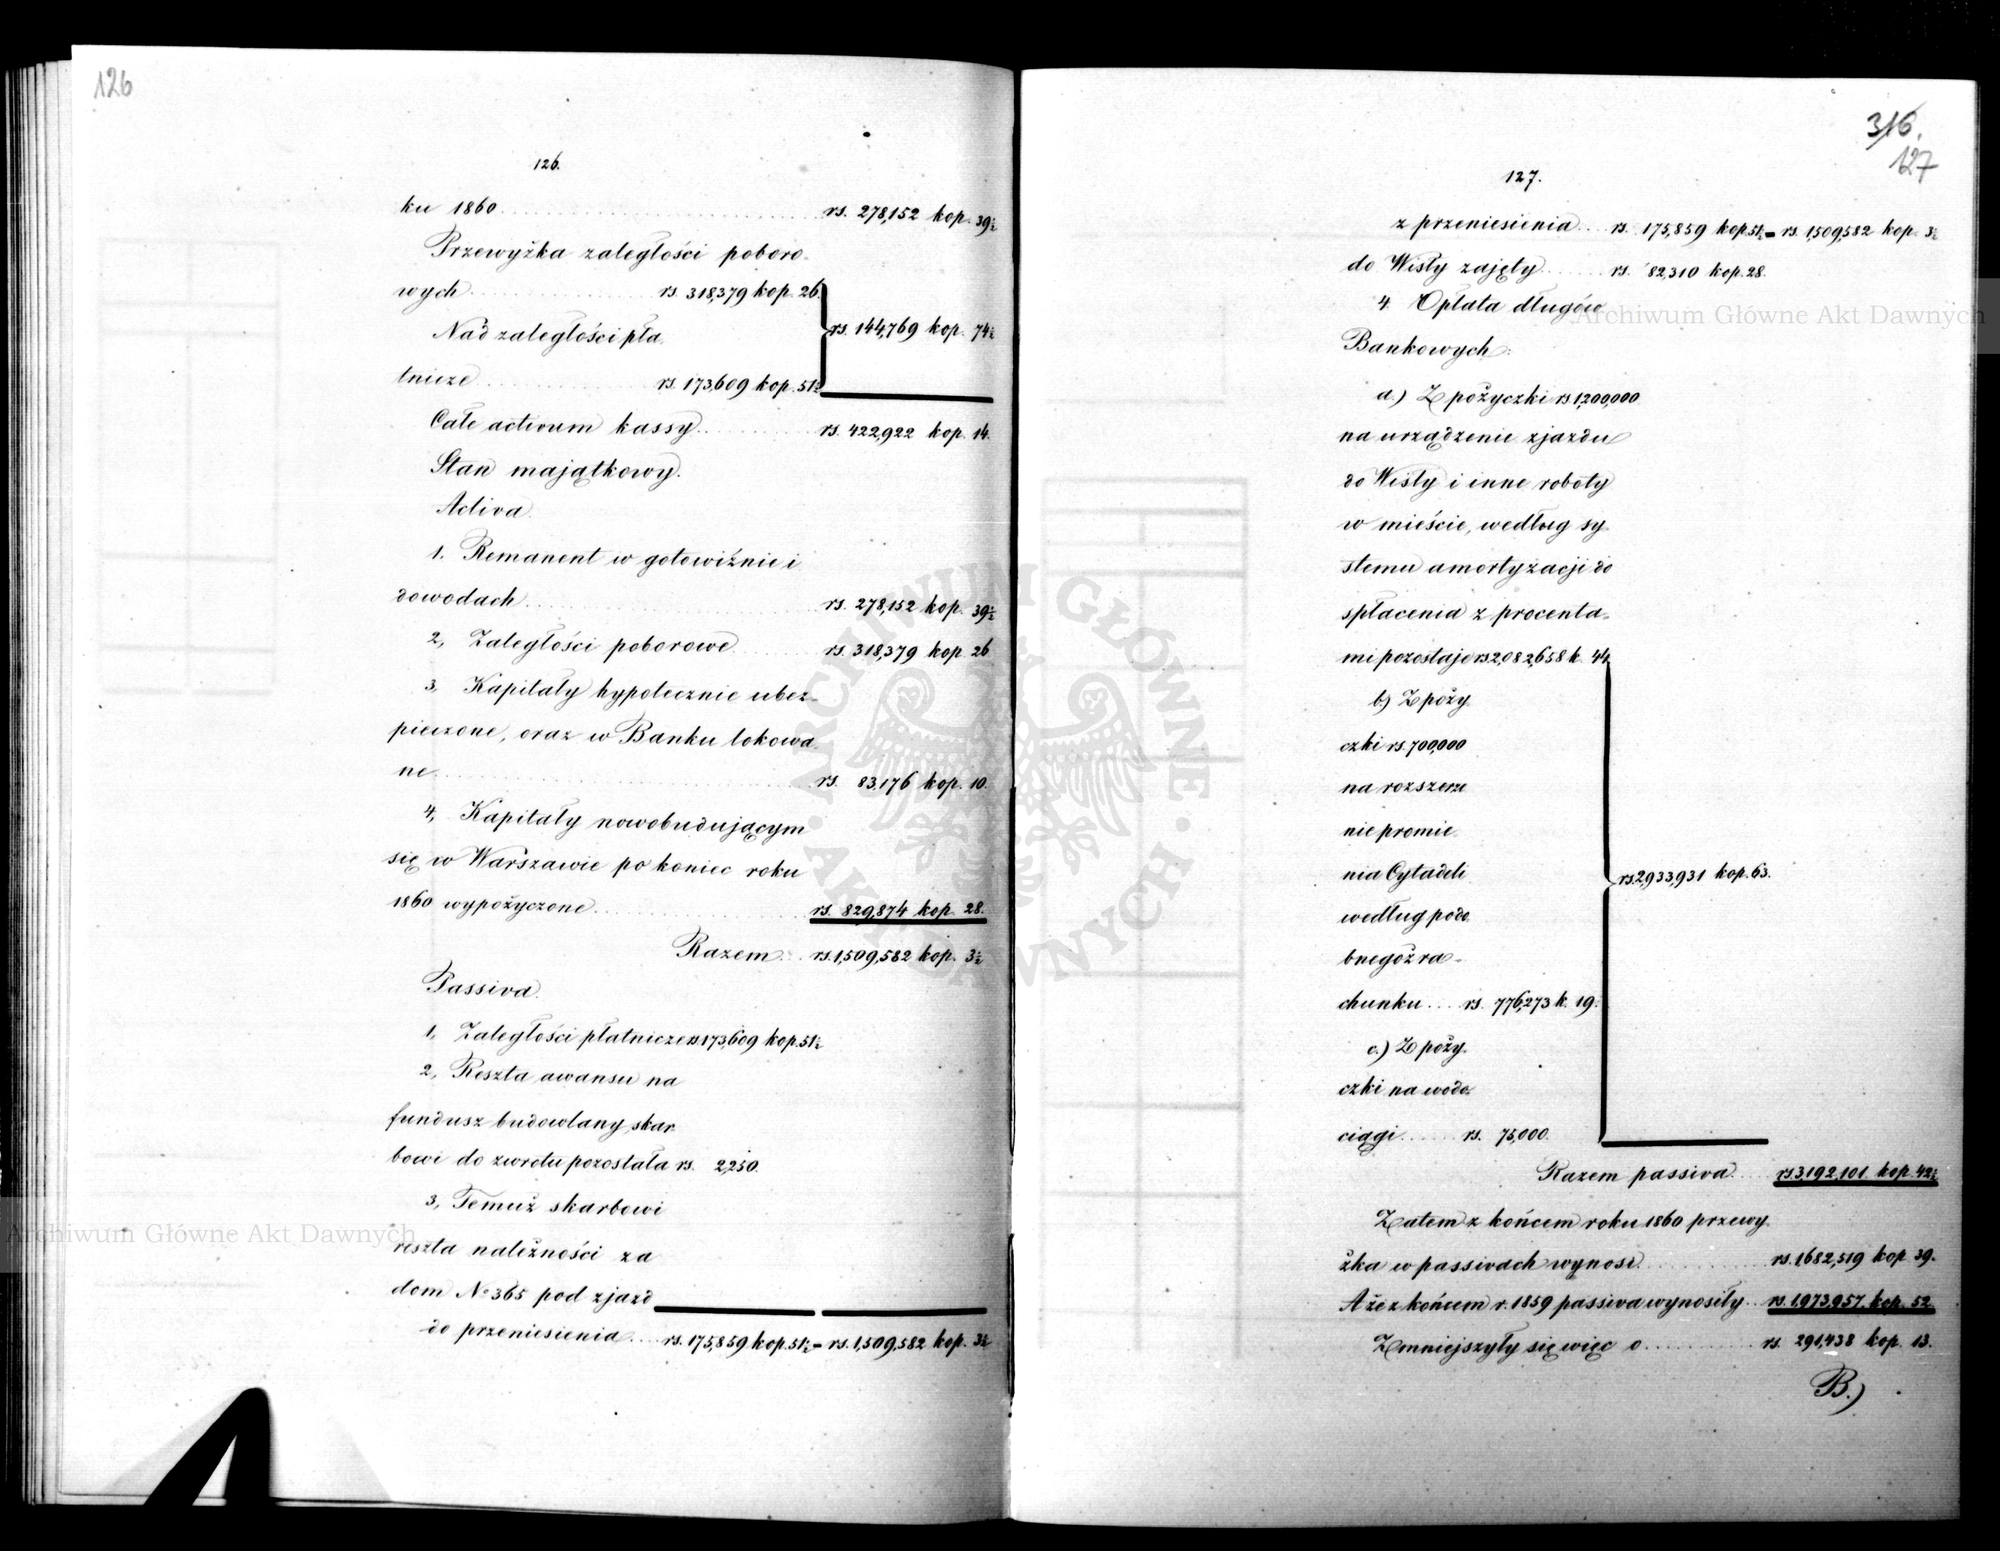 126
126.
ku 1860 .......... rs. 278,152 kop. 39½
Przewyżka zaległości poboro-
wych .......... rs. 318,379 kop. 26.
Nad zaległości pła- rs. 144,769 kop. 74½
tnicze .......... rs. 173,609 kop. 51½
Całe activum kassy .......... rs. 422,922 kop. 14.
Stan majątkowy.
Activa.
1. Remanent w gotowiźnie i
dowodach .......... rs. 278,152 kop. 39½
2, Zaległości poborowe .......... rs. 318,379 kop. 26
3, Kapitały hypotecznie ubez-
pieczone, oraz w Banku lokowa-
ne .......... rs. 83,176 kop. 10.
4, Kapitały nowobudującym
się w Warszawie po koniec roku
1860 wypożyczone .......... rs. 829,874 kop. 28.
Razem .... rs. 1,509,582 kop. 3½
Passiva.
1, Zaległości płatnicze rs 173,609 kop. 51½
2, Reszta awansu na
fundusz budowlany skar-
bowi do zwrotu pozostała rs. 2,250.
3, Temuż skarbowi
reszta należności za
dom No 365 pod zjazd
do przeniesienia .... rs. 175,859 kop. 51½ - rs. 1,509,582 kop. 3½
316.
127
127.
z przeniesienia .... rs. 175,859 kop 51½ - rs. 1,509,582 kop. 3½
do Wisły zajęty .......... rs. 82,310 kop. 28.
4. Opłata długów
Bankowych:
a.) Z pożyczki rs 1,200,000
na urządzenie zjazdu
do Wisły i inne roboty
w mieście, według sy-
stemu amortyzacji do
spłacenia z procenta-
mi pozostaje rs 2,082,658 k. 44.
b.) Z poży-
czki rs. 700,000
na rozszerze
nie promie-
nia Cytadeli
według podo-
bnegoż ra-
chunku .... rs. 776,273 k. 19.
rs. 2,933,931 kop. 63.
c.) Z poży-
czki na wodo-
ciągi .......... rs. 75,000.
Razem passiva .... rs 3,192,101. kop. 42½
Zatem z końcem roku 1860 przewy-
żka w passivach wynosi .......... rs. 1,682,519 kop. 39.
A że z końcem r. 1859 passiva wynosiły .. rs. 1,973,957. kop. 52.
Zmniejszyły się więc o .......... rs. 291,438 kop. 13.
B.)
Archiwum Główne Akt Dawnych
Archiwum Główne Akt Dawnych
ARCHIWUM GŁÓWNE · AKT DAWNYCH ·